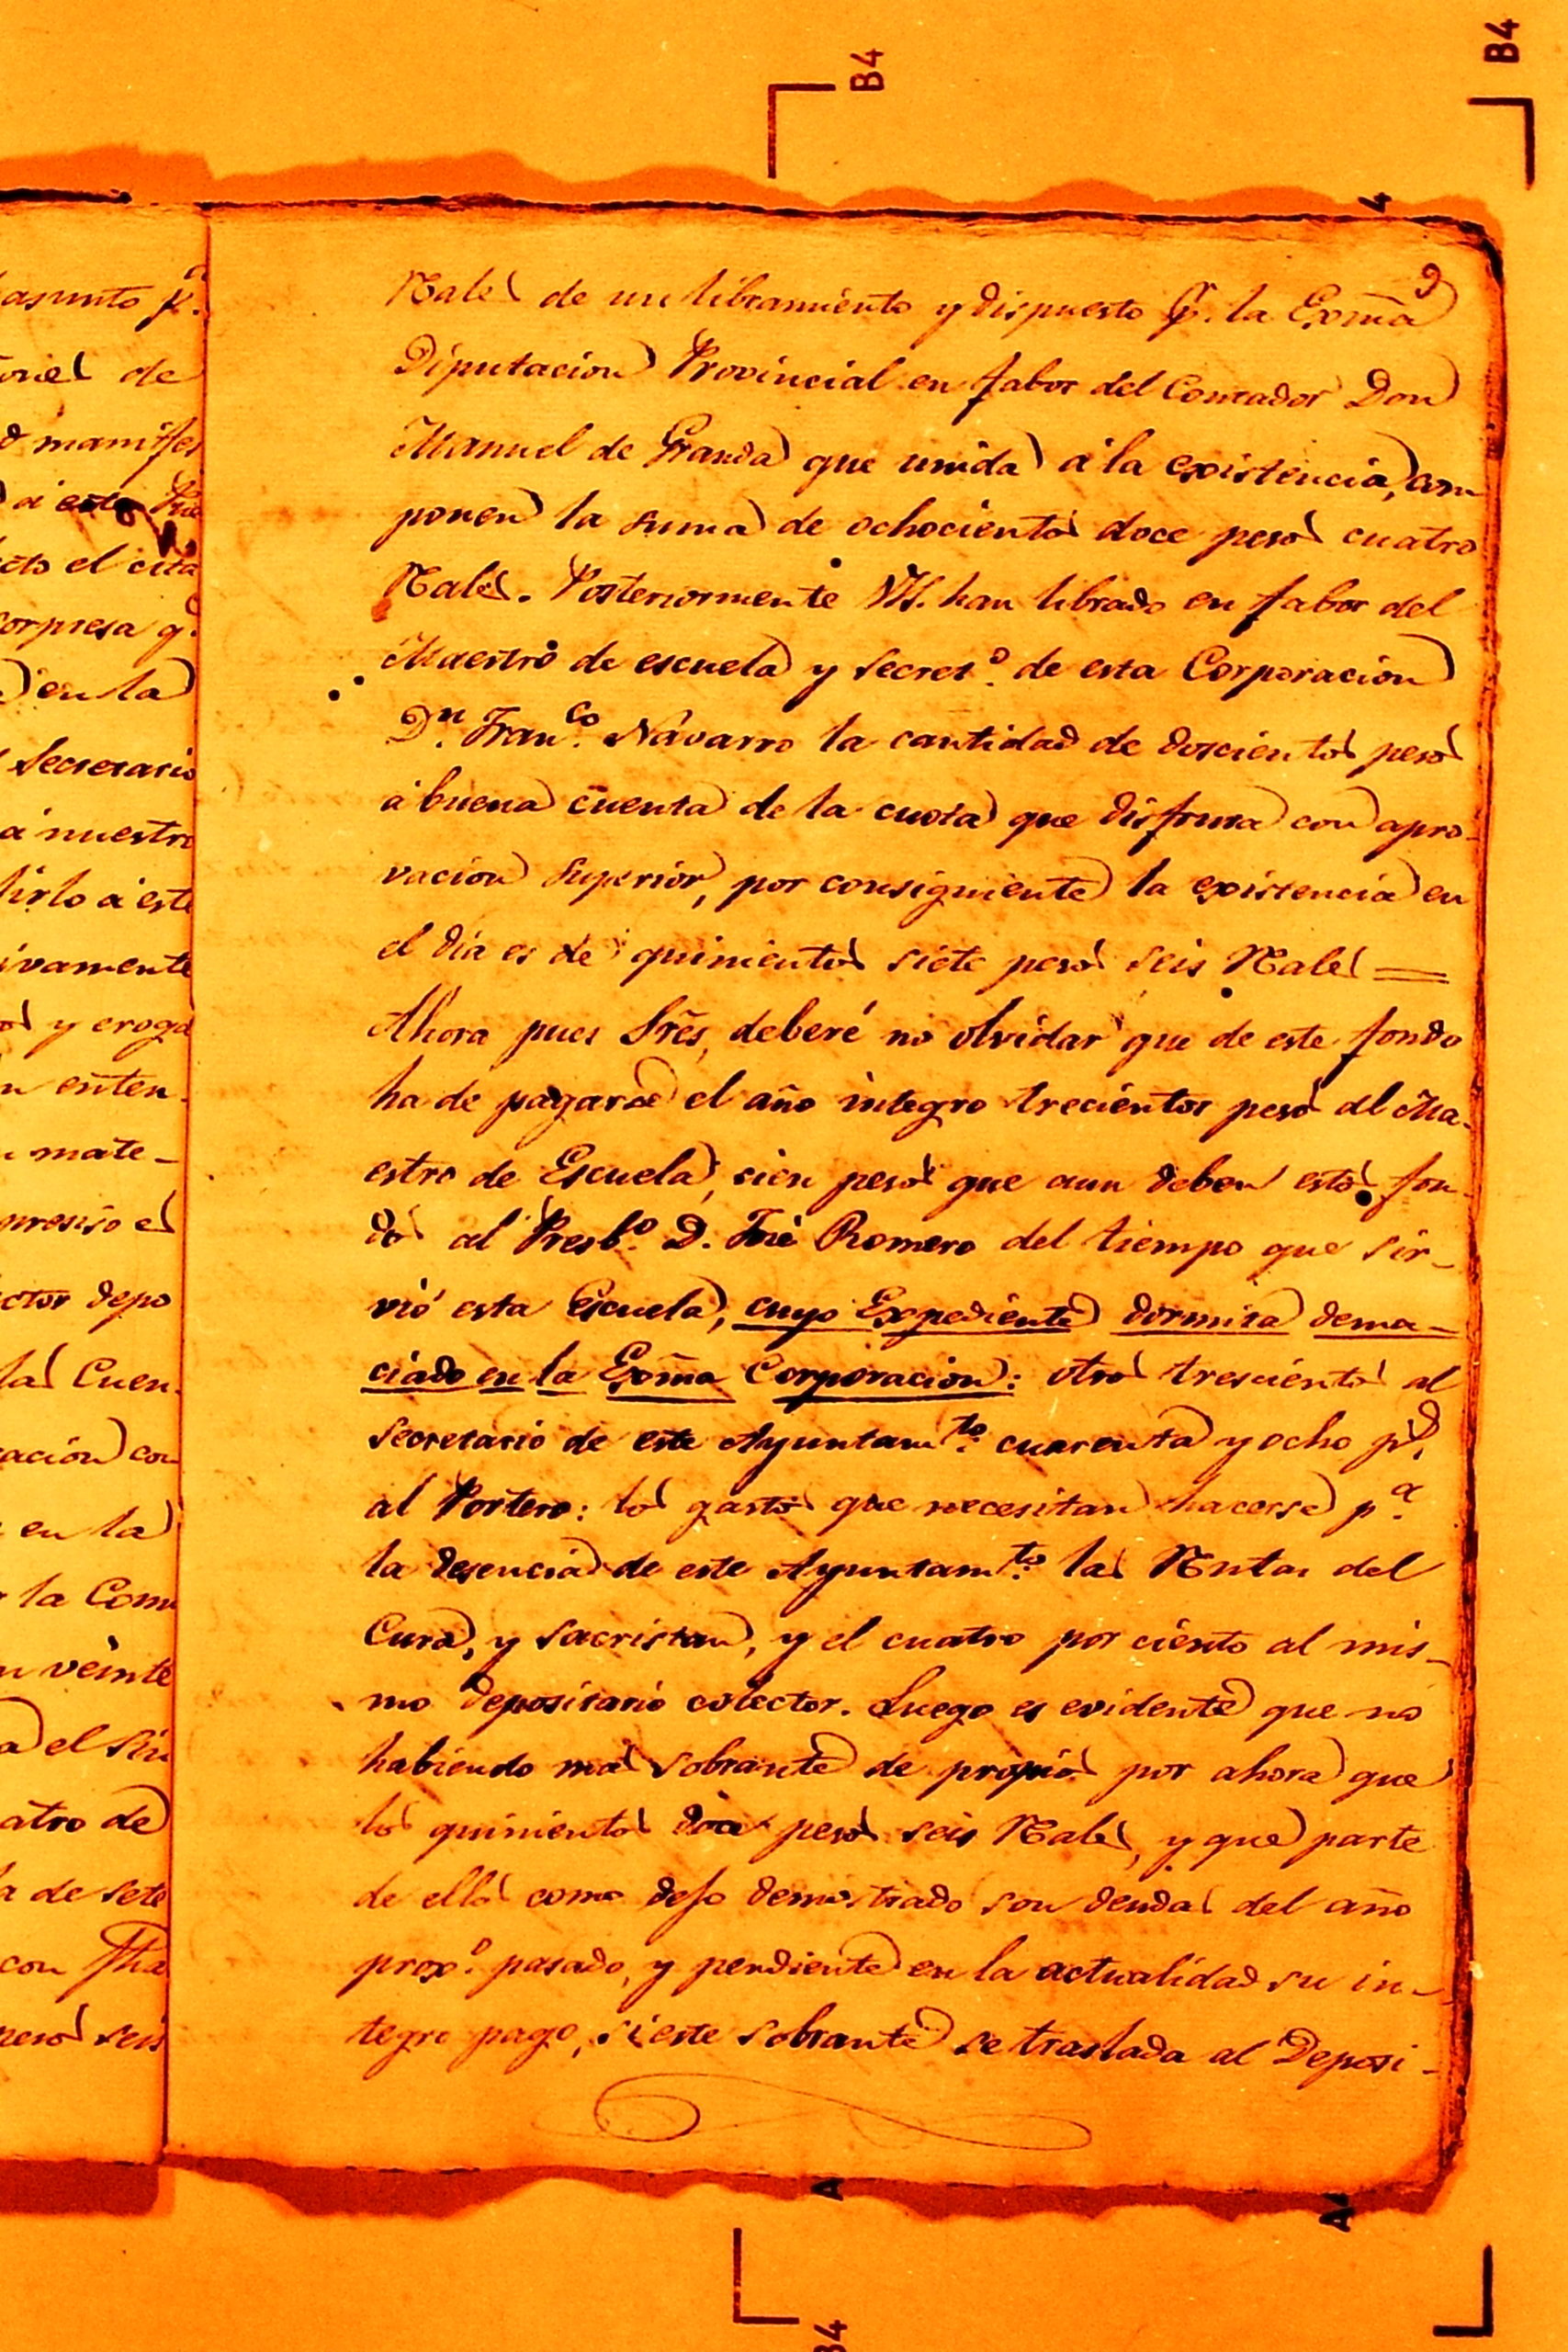 B4
B4
4
9
Rales de un libramiento y dispuesto p.r la Exm̃a
Diputacion Provincial en fabor del Contador Don
Manuel de Granda que unida á la existencia, com
ponen la suma de ochocientos doce pesos cuatro
Rales. Posteriormente VSS. han librado en fabor del
Maestro de escuela y secret.o de esta Corporacion
D.n Fran.co Navarro la cantidad de doscientos pesos
á buena cuenta de la cuota que disfruta con apro-
vacion superior, por consiguiente la existencia en
el dia es de quinientos siete pesos seis Rales =
Ahora pues Srẽs, deberé no olvidar que de este fondo
ha de pagarse el año integro trecientos pesos al Ma-
estro de Escuela, cien pesos que aun deben estos fon-
dos al Presb.o D. José Romero del tiempo que sir-
vió esta Escuela, cuyo Expediente dormita dema-
ciado en la Exm̃a Corporacion: otros trescientos al
secretario de este Ayuntam.to cuarenta y ocho p.s
al Portero: los gastos que necesitan hacerse p.a
la desencia de este Ayuntam.to las Rentas del
Cura, y sacristan, y el cuatro por ciento al mis-
mo depositario colector. Luego es evidente que no
habiendo mas sobrante de propios por ahora que
los quinientos doce pesos seis Rales, y que parte
de ellos como dejo demostrado son deudas del año
prox.o pasado, y pendiente en la actualidad su in-
tegro pago, si este sobrante se traslada al Deposi-
asunto p.a
de
manifes
á este
el cita
corpresa q.e
en la
Secretario
á nuestro
á este
ivamente
y eroga
enten-
mate-
preciso el
ctor depo
las Cuen-
acion con
en la
la Com
veinte
el Sin
atro de
de sete
con fha
pesos seis
A
A
B4